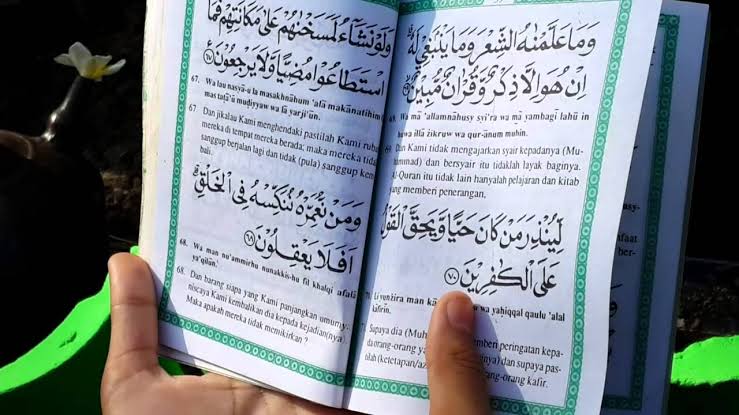 وَلَوْ نَشَآءُ لَمَسَخْنٰهُمْ عَلٰى مَكَانَتِهِمْ فَمَا
اسْتَطَاعُوْا مُضِيًّا وَّلَا يَرْجِعُوْنَ ٦٧
67. Wa lau nasyā-u la masakhnāhum 'alā makānatihim
mas taṭā'ū muḍiyyaw wa lā yarji'ūn.
67 Dan jikalau Kami menghendaki pastilah Kami rubah
mereka di tempat mereka berada; maka mereka tidak
sanggup berjalan lagi dan tidak (pula) sanggup kem
bali.
وَمَنْ نُّعَمِّرْهُ نُنَكِّسْهُ فِى الْخَلْقِ
اَفَلَا يَعْقِلُوْنَ ٦٨
68. Wa man nu'ammirhu nunakkis-hu fil khalqi afalā
ya'qilūn.
68. Dan barang siapa yang Kami panjangkan umurnya
niscaya Kami kembalikan dia kepada kejadian(nya).
Maka apakah mereka tidak memikirkan ?
وَمَا عَلَّمْنٰهُ الشِّعْرَ وَمَا يَنْۢبَغِيْ لَهٗ
اِنْ هُوَ اِلَّا ذِكْرٌ وَّقُرْاٰنٌ مُّبِيْنٌ
69. Wa mā 'allamnāhusy syi'ra wa mā yambagī lahū in
huwa illā żikruw wa qur-ānum mubīn.
69. Dan Kami tidak mengajarkan syair kepadanya (Mu-
hammad) dan bersyair itu tidaklah layak baginya.
Al-Quran itu tidak lain hanyalah pelajaran dan kitab
yang memberi penerangan.
لِّيُنْذِرَ مَنْ كَانَ حَيًّا وَّيَحِقَّ الْقَوْلُ
عَلَى الْكٰفِرِيْنَ ٧٠
Li yunżira man wa yaḥiqqal qaulu 'alal
kāfirīn.
Supaya dia (Muh memberi peringatan kepa-
da orang-orang nya) dan supaya pas-
tilah (ketetapan/az orang-orang kafir.
faat
ber-